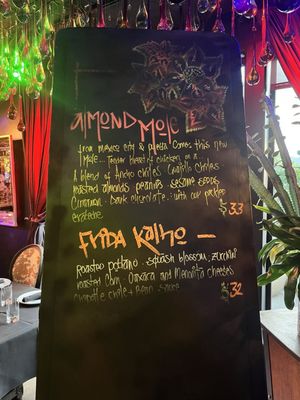 almond mole
from mexico city & puebla comes this new
mole... Tender breast of chicken on a
A blend of ancho chiles, Guajillo chiles
roasted almonds, peanuts, sesame seeds,
Cinnamon, dark chocolate, with our pickled
$33
FRIDA Kalho —
Roasted poblano, squash blossom, zucchini
roasted corn, Oaxaca and Menonita cheeses
chipotle chile + bean sauce
$32